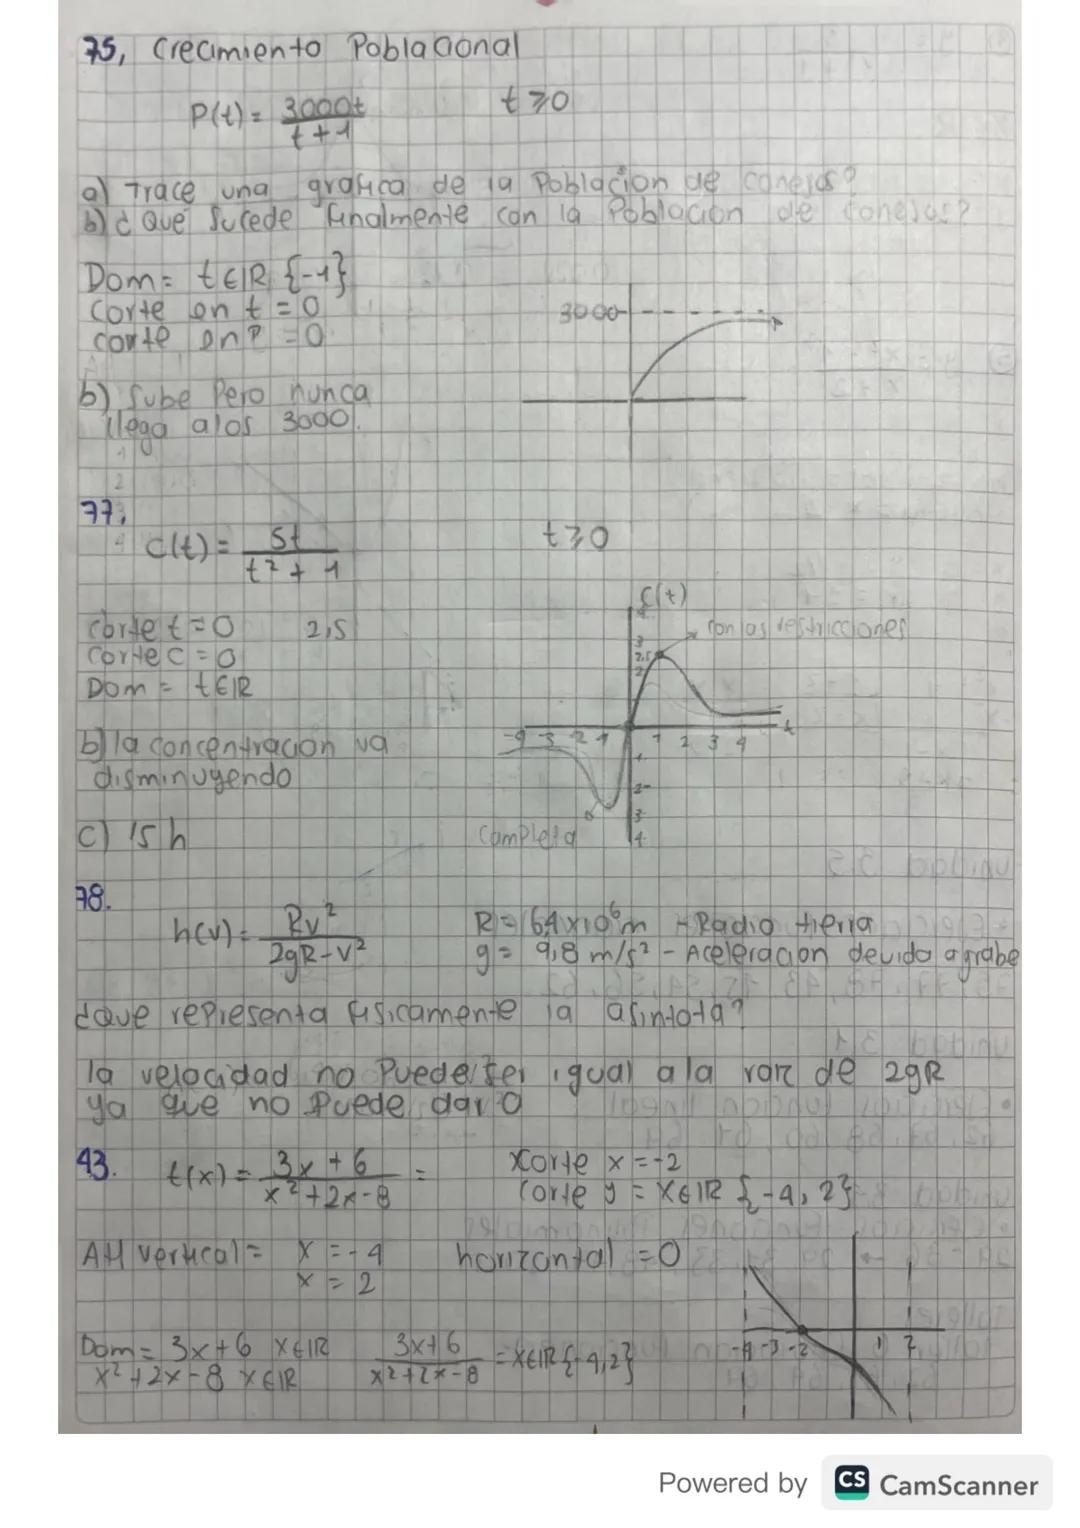 75, Crecimiento Poblacional
P(t) = 3000t / t + 1    t ≥ 0
a) Trace una grafica de la Poblacion de conejos?
b) ¿ Que Sucede finalmente con la Poblacion de conejos?
Dom = t ∈ IR {-1}
Corte en t = 0
corte en P = 0
3000
b) Sube Pero nunca
llega a los 3000.
77,
C(t) = 5t / t² + 1    t ≥ 0
C(t)
Corte t = 0    2,5
Corte C = 0
Dom = t ∈ IR
con las restricciones
3
2.5
2
-4 -3 -2 -1 1 2 3 4 t
b) la concentracion va
disminuyendo
1
2
3
4
Completa
C) 15 h
78.
h(v) = Rv² / 2gR - v²
R = 6,4 x 10⁶ m - Radio tierra
g = 9,8 m/s² - Aceleracion devido a grabe
¿ que representa fisicamente la asintota?
la velocidad no Puede ser igual a la raiz de 2gR
ya que no Puede dar 0
43. t(x) = 3x + 6 / x² + 2x - 8 =
Corte x = -2
Corte y = x ∈ IR {-4, 2}
AH vertical = x = -4
x = 2
horizontal = 0
Dom = 3x + 6 x ∈ IR
x² + 2x - 8 x ∈ IR
3x + 6 / x² + 2x - 8 = x ∈ IR {-4, 2}
-4 -3 -2 1 2
Powered by CS CamScanner